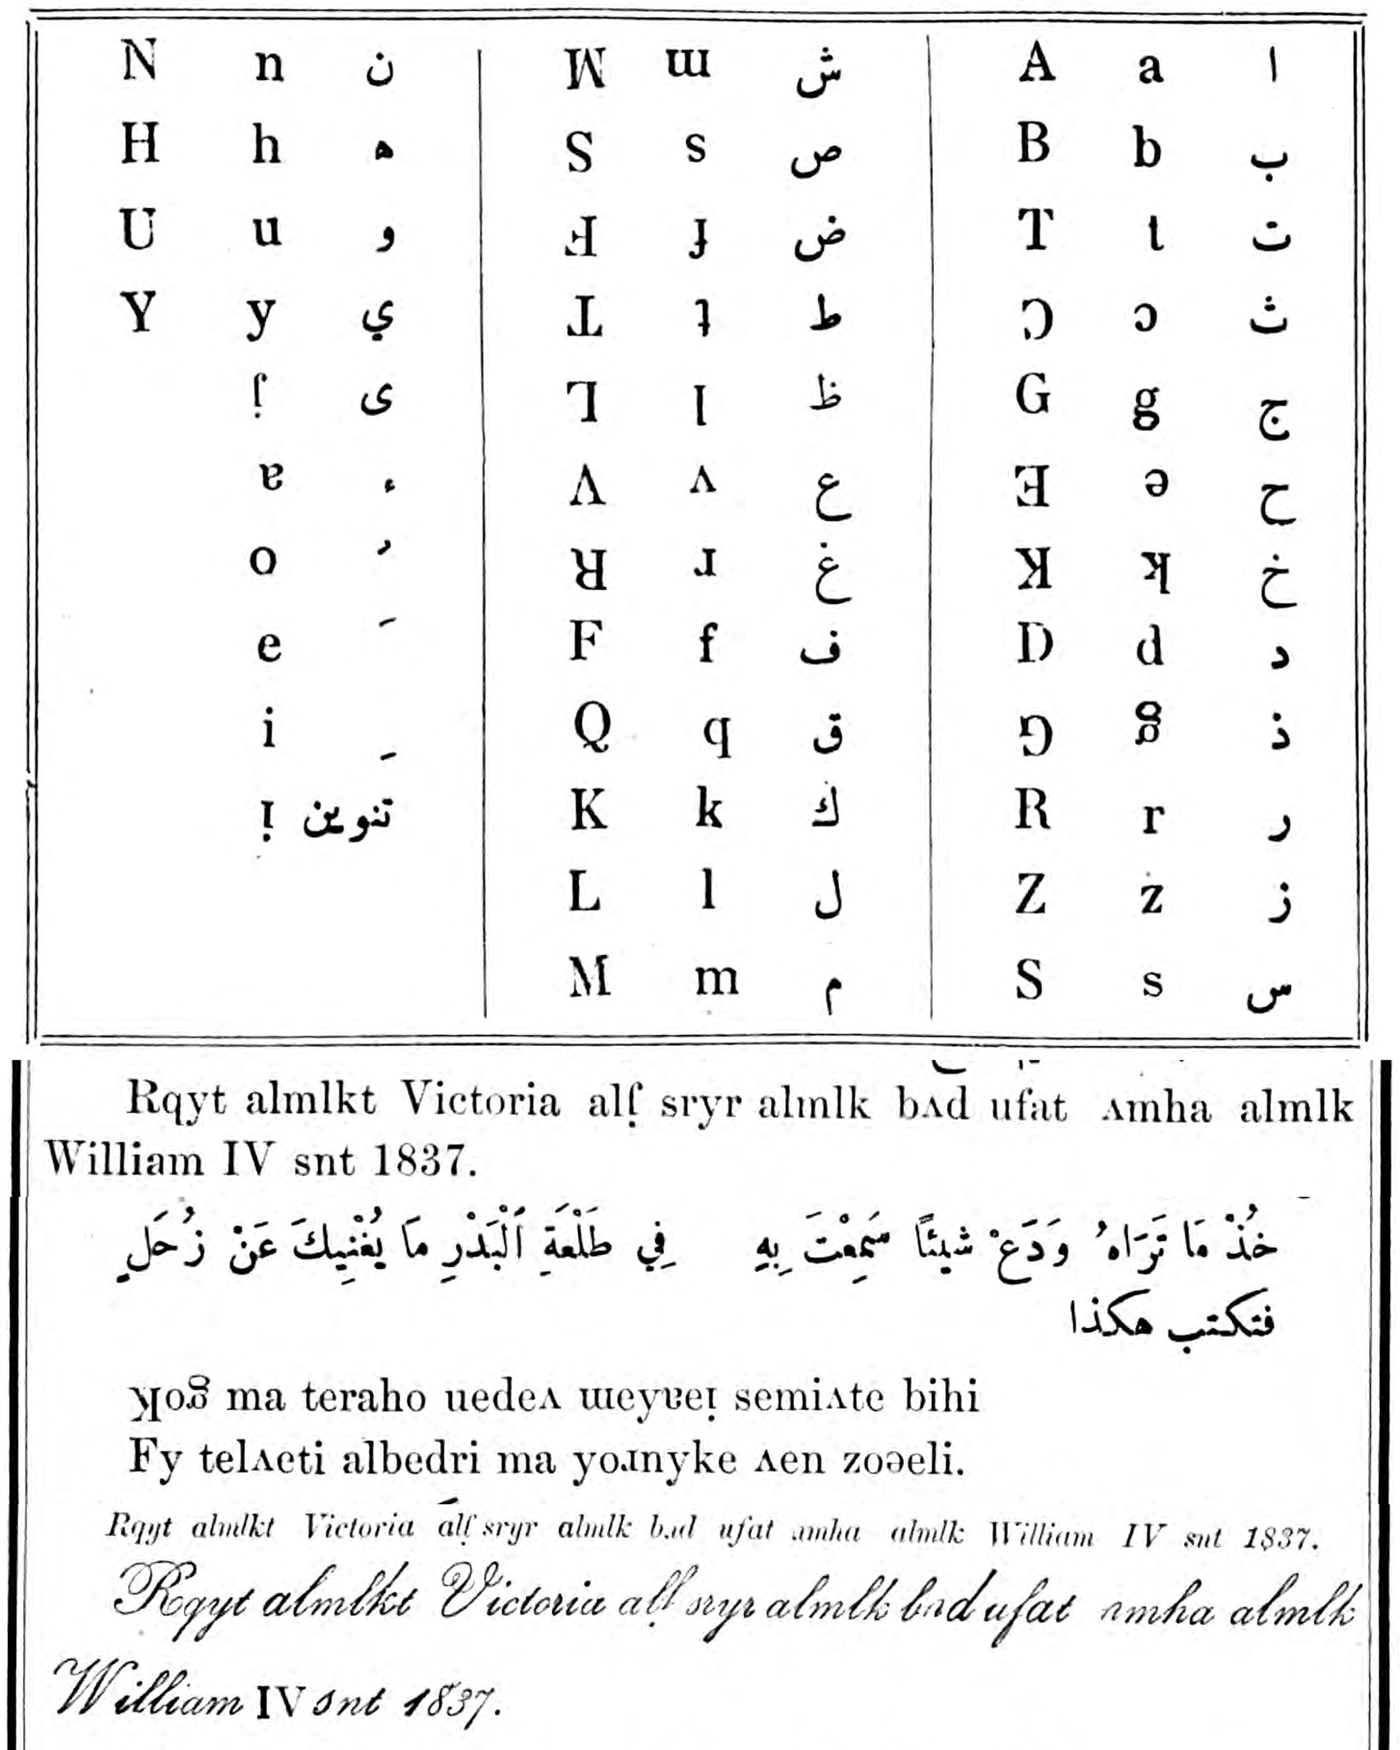 A a ا
B b ب
T t ت
Ɔ ɔ ث
G g ج
Ǝ ə ح
Ʞ ʞ خ
D d د
⅁ ᵷ ذ
R r ر
Z z ز
S s س
Ɯ ɯ ش
S s ص
Ⅎ ɟ ض
Ʇ ʇ ط
⅂ l ظ
Λ ʌ ع
ᴚ ɹ غ
F f ف
Q q ق
K k ك
L l ل
M m م
N n ن
H h ه
U u و
Y y ي
ſ̣ ى
ɐ ء
o ُ
e َ
i ِ
ı̣ تنوين
Rqyt almlkt Victoria alſ̣ sryr almlk bʌd ufat ʌmha almlk
William IV snt 1837.
خُذْ مَا تَرَاهُ وَدَعْ شيئًا سَمِعْتَ بِهِ فِي طَلْعَةِ ٱلْبَدْرِ مَا يُغْنِيكَ عَنْ زُحَلِ
فتكتب هكذا
Ʞoᵷ ma teraho uedeʌ ɯeyɐeı̣ semiʌte bihi
Fy telʌeti albedri ma yoɹnyke ʌen zoəeli.
Rqyt almlkt Victoria alſ̣ sryr almlk bʌd ufat ʌmha almlk William IV snt 1837.
Rqyt almlkt Victoria alſ̣ sryr almlk bʌd ufat ʌmha almlk
William IV snt 1837.